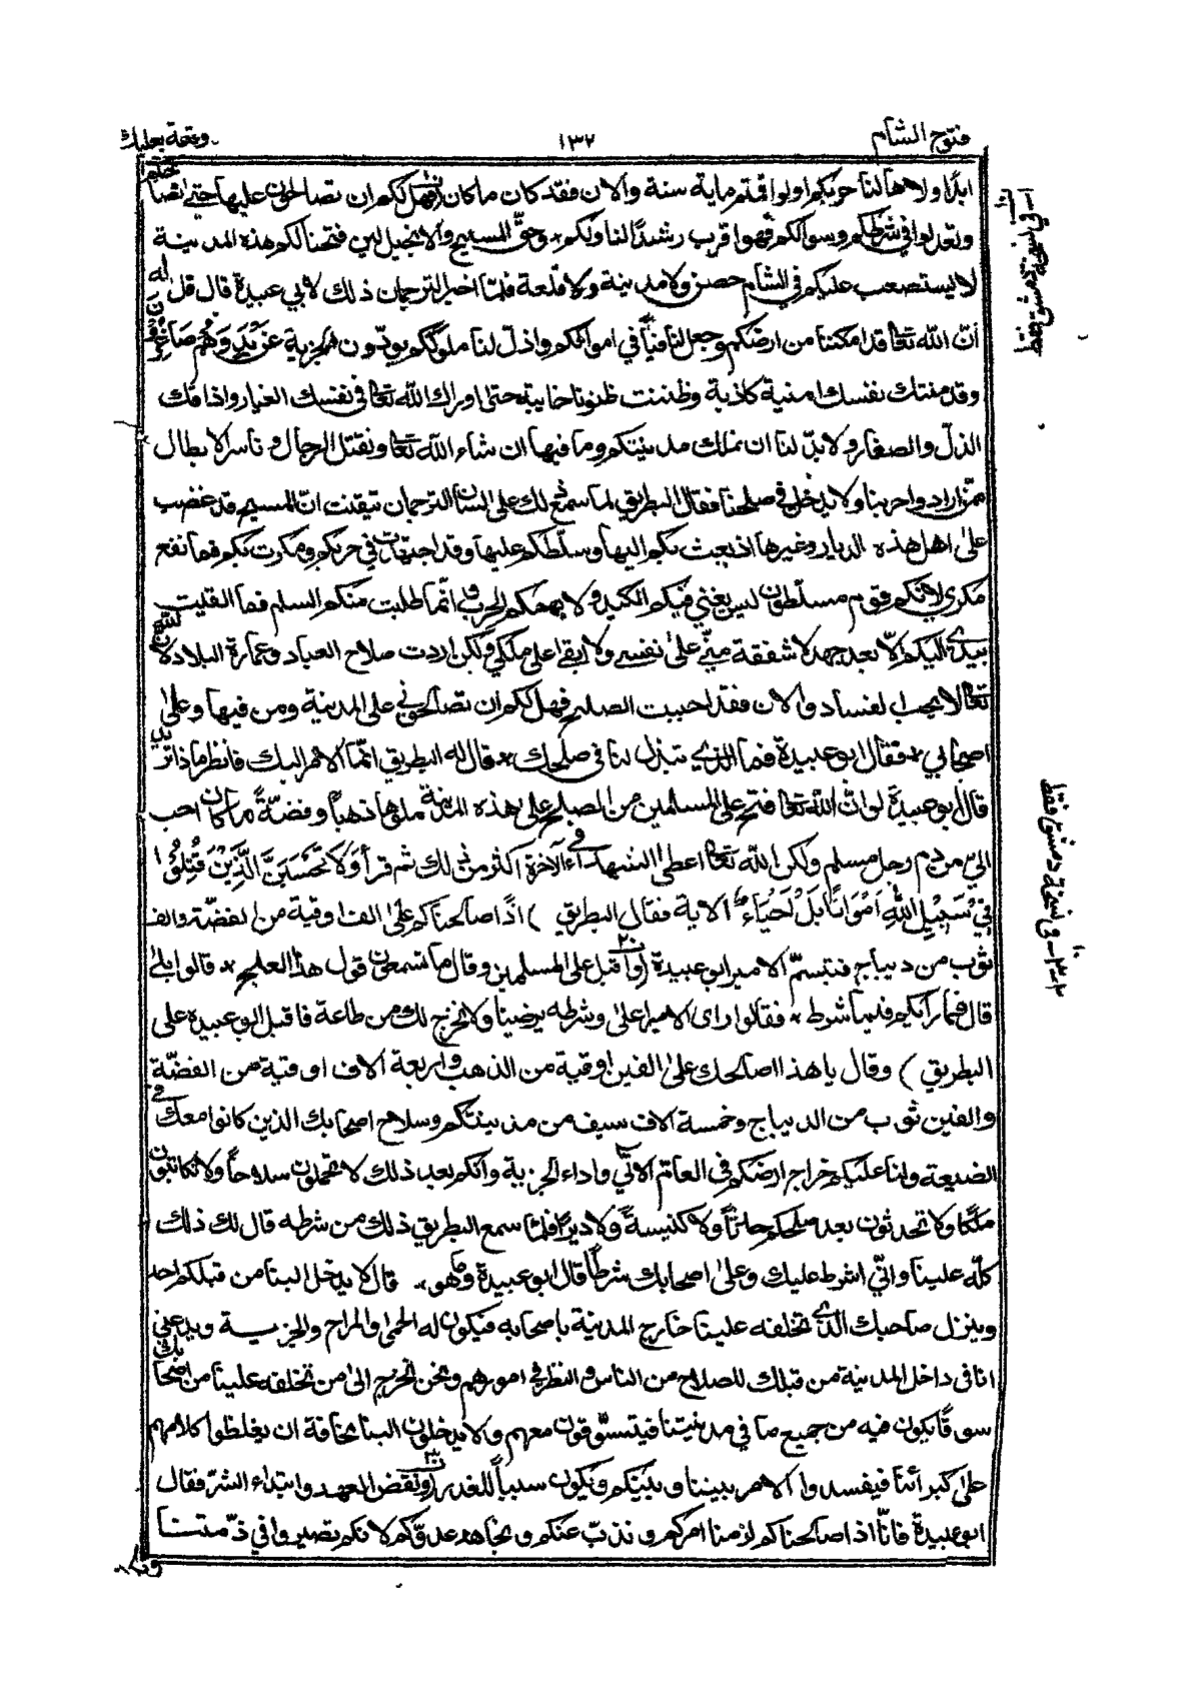 فتوح الشام
١٣٧
وقعة بعلبك
ابدًا ولا هالنا حربكم ولو اقمتم ماية سنة والان فقد كان ما كان فهل لكم ان تصالحون عليها حتى
وتعدلوا في شرطكم وسوالكم فهوا قرب رشدًا لنا ولكم وحقّ المسيح والانجيل لين فتحنا لكم هذه المدينة
لا يستصعب عليكم في الشام حصن ولا مدينة ولا قلعة فلمّا اخبر الترجمان ذلك لابي عبيدة قال قل له
انّ الله تعالى قد امكننا من ارضكم وجعل لنا فيأ في اموالكم واذلّ لنا ملوككم يودّون الجزية عَنْ يَدٍ وَهُم صَاغِرُوْنَ
وقد منتك نفسك امنية كاذبة وظننت ظنونا خايبة حتى اوراك الله تعالى في نفسك العيار واذاقك
الذلّ والصغار ولا بدّ لنا ان نملك مدينتكم وما فيها ان شاء الله تعالى ونقتل الرجال وناسر الابطال
ممّن اراد واحربنا ولا يدخل في صلحنا فقال البطريق لما سمع ذلك على لسان الترجمان تيقنت انّ المسيح قد غضب
على اهل هذه الديار وغيرها اذ بعث بكم اليها وسلّطكم عليها وقد اجتهدت في حربكم ومكرت بكم فما نفع
مكري لانكم قوم مسلّطون ليس يغني فيكم الكيد ولا يهمكم الحرب وانّما طلبت منكم السلم فما القيت
بيدي اليكم الّا بعد جهد لا شفقة منّي على نفسي ولا ابقا على ملكي ولكن اردت صلاح العباد وعمارة البلاد لان الله
تعالى لا يحب الفساد والان فقد احببت الصلح فهل لكم ان تصالحوني على المدينة ومن فيها وعلى
اصحابي فقال ابو عبيدة فما الذي تبذل لنا في صلحك قال له البطريق انّما الامر اليك فانظر ماذا تريد
قال ابو عبيدة لو انّ الله تعالى فتح على المسلمين من الصلح على هذه المدينة ملؤها ذهباً وفضّةً ما كان احب
اليّ من دم رجل مسلم ولكن الله تعالى اعطى الشهداء في الآخرة اكثر من ذلك ثم قرأ وَلَا تَحْسَبَنَّ الَّذِيْنَ قُتِلُوْا
فِيْ سَبِيْلِ اللهِ اَمْوَاتًا بَلْ اَحْيَاء الاية فقال البطريق ) اذًا صالحناكم على الف اوقية من الفضّة والف
ثوب من ديباج فتبسّم الامير ابو عبيدة (واقبل على المسلمين وقال ما تسمعون قول هذا العلج قالوا بلى
قال فما رايكم فيما شرط فقالوا راى الامير اعلى وشرطه يرضينا ولا نخرج لك من طاعة فاقبل ابو عبيدة على
البطريق ) وقال يا هذا اصالحك على الفين اوقية من الذهب واربعة الاف اوقية من الفضّة
والفين ثوب من الديباج وخمسة الاف سيف من مدينتكم وسلاح اصحابك الذين كانوا معك في
الضيعة ولنا عليكم خراج ارضكم في العام الاتي واداء الجزية وانكم بعد ذلك لا تحملون سلاحاً ولا تكاتبون
ملكًا ولا تحدثون بعد صلحكم حادثاً ولا كنيسةً ولا ديرًا فلمّا سمع البطريق ذلك من شرطه قال لك ذلك
كلّه علينا وانّي اشرط عليك وعلى اصحابك شرطاً قال ابو عبيدة وما هو قال لا يدخل الينا من قبلكم احد
وينزل صاحبك الذي تخلفه علينا خارج المدينة باصحابه فيكون له الحمى والمراح والجزية ويدعني
انا في داخل المدينة من قبلك للصلاح من الناس والنظر في امورهم ونحن نخرج الى من تخلفه علينا من اصحابك
سوقًا يكون فيه من جميع ما في مدينتنا فيتسّوقون معهم ولا يدخلون الينا مخافة ان يغلظوا كلامهم
على كبرائنا فيفسدوا الامر بيننا وبينكم ويكون سبباً للغدر (ونقض العهد وابتداء الشرّ فقال
ابو عبيدة فانّا اذا صالحناكم لزمنا امركم ونذبّ عنكم ونجاهد عدوّكم لانكم تصيروا في ذمّتنا